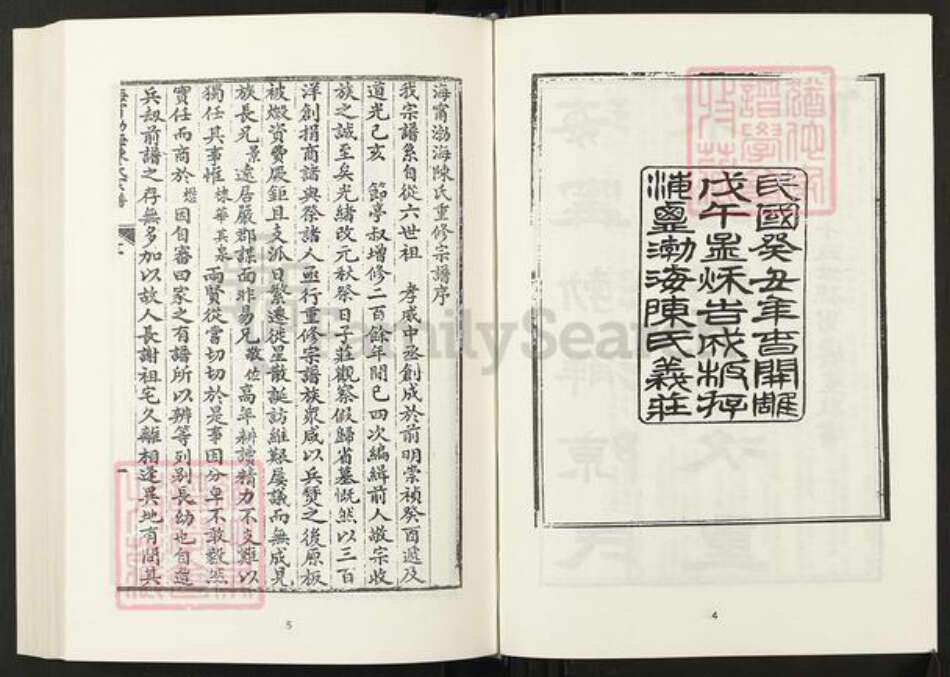 民國癸丑年春開雕
戊午孟秋告成板存
海寧渤海陳氏義莊
4
海甯渤海陳氏重修宗譜序
我宗譜系自從六世祖 孝威中丞創成於前明崇禎癸酉遞及
道光己亥 節亭叔增修二百餘年間已四次編緝前人敬宗收
族之誠至矣光緒改元秋祭日子莊觀察假歸省墓慨然以三百
洋創捐商諸與祭諸人亟行重修宗譜族衆咸以兵燹之後原板
被燬資費厥鉅且支派日繁遷徙星散誕訪維艱屢議而無成見
族長兄景 遠居嚴郡謀面非易兄敬佐高年耕讀精力不支難以
獨任其事惟棣華其泉兩賢從當切切於是事因分卑不敢毅然
實任而商於 因自審曰家之有譜所以辨等列別長幼也自遭
兵劫前譜之存無多加以故人長謝祖宅久離相逢異地有問其
5
FamilySearch